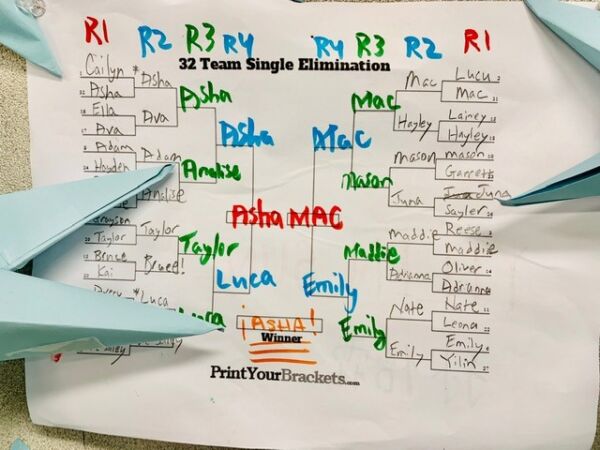 R1 R2 R3 R4 R4 R3 R2 R1
32 Team Single Elimination
Cailyn
* Asha
Asha
Asha
Ella
Ava
Ava
Asha
Adam
Adam
Hayden
Analise
Analise
Grayson
Taylor
Taylor
Taylor
Bruce
Kai
Luca
* Luca
Asha MAC
¡ASHA!
Winner
PrintYourBrackets.com
Mac
Mac
Mac
Lucu
Mac
Hayley
Lainey
Hayley
Mason
Mason
mason
Garrett
Juna
Juna
Sayler
Emily
Maddie
maddie
Reese
maddie
Adrianna
Oliver
Adrianna
Emily
Nate
Nate
Leona
Emily
Emily
Yilin